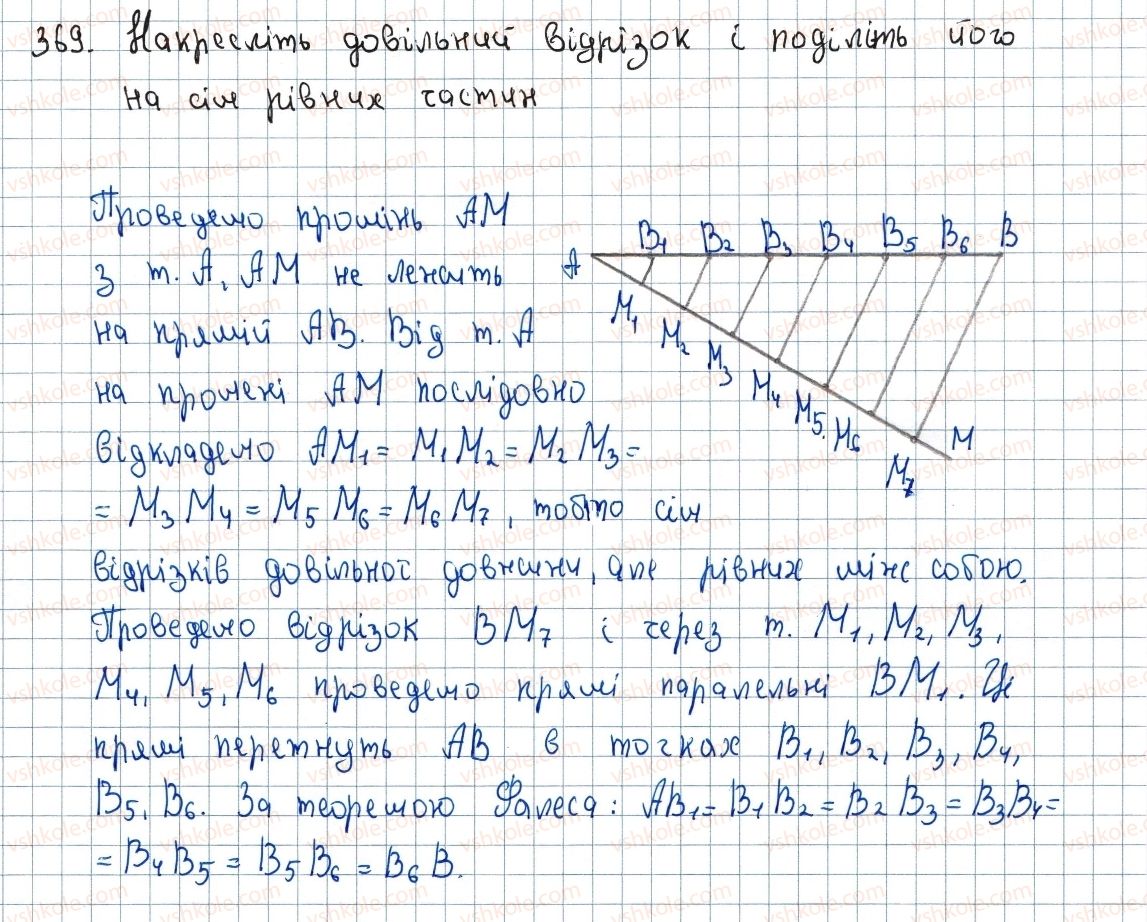 369. Накресліть довільний відрізок і поділіть його
на сім рівних частин
Проведемо промінь AM
з т. A, AM не лежить
на прямій AB. Від т. A
на промені AM послідовно
відкладемо AM₁ = M₁M₂ = M₂M₃ =
= M₃M₄ = M₅M₆ = M₆M₇, тобто сім
відрізків довільної довжини, але рівних між собою.
Проведемо відрізок BM₇ і через т. M₁, M₂, M₃,
M₄, M₅, M₆ проведемо прямі паралельні BM₁. Ці
прямі перетнуть AB в точках B₁, B₂, B₃, B₄,
B₅, B₆. За теоремою Фалеса: AB₁ = B₁B₂ = B₂B₃ = B₃B₄ =
= B₄B₅ = B₅B₆ = B₆B.
A B₁ B₂ B₃ B₄ B₅ B₆ B
M₁ M₂ M₃ M₄ M₅. M₆ M₇ M
vshkole.com